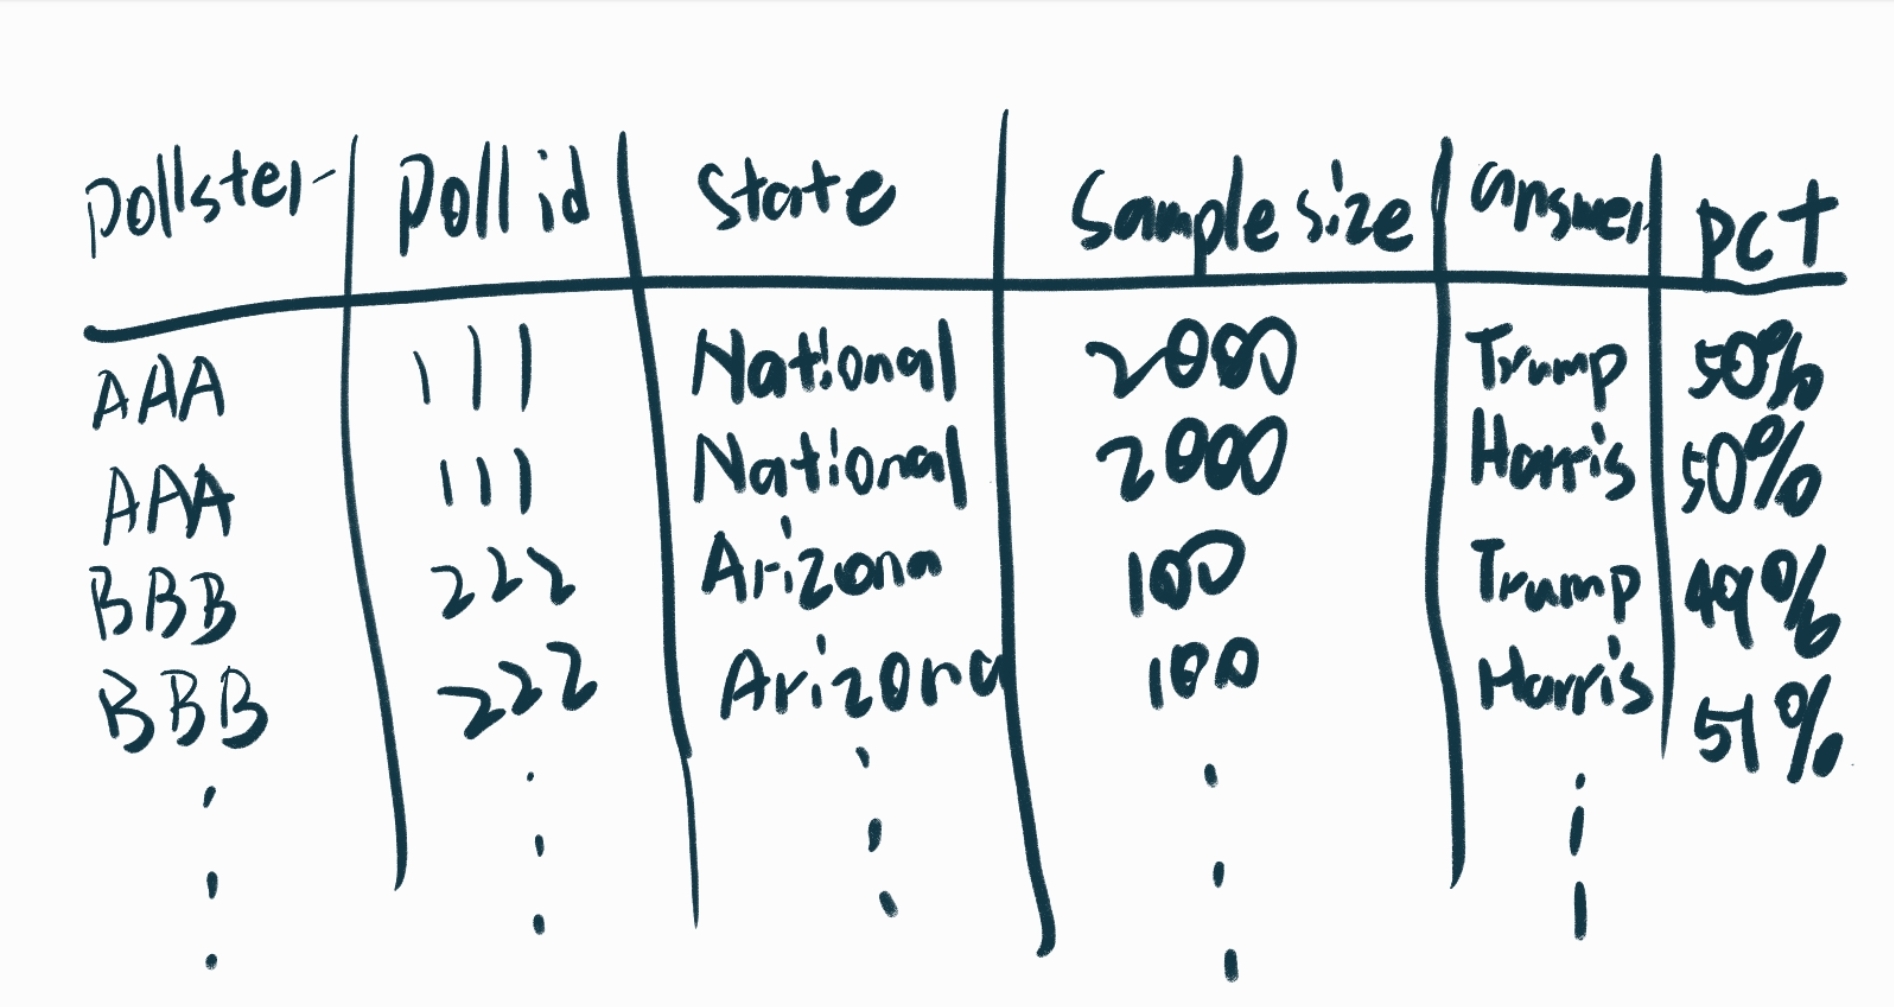 Pollster Poll id State Sample size answer pct
AAA 111 National 2000 Trump 50%
AAA 111 National 2000 Harris 50%
BBB 222 Arizona 100 Trump 49%
BBB 222 Arizona 100 Harris 51%